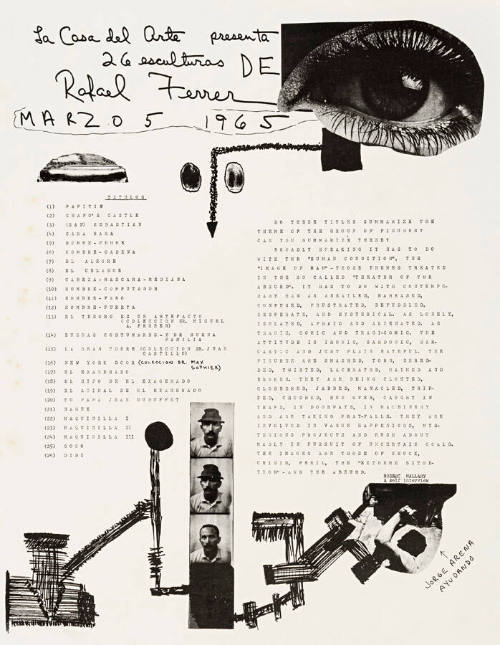 La Casa del Arte presenta
26 esculturas DE
Rafael Ferrer
MARZO 5 1965
TITULOS
(1) PAPITIN
(2) CHAGO'S CASTLE
(3) (SAN) SEBASTIAN
(4) CAJA RARA
(5) HOMBRE-POSTE
(6) HOMBRE-CADENA
(7) EL ALCIDE
(8) EL ENLACE
(9) CABEZA-MASCARA-MEDIANA
(10) HOMBRE-COMPUTADOR
(11) HOMBRE-FARO
(12) HOMBRE-PUERTA
(13) EL TESORO ES UN ARTEFACTO
(COLECCION DR. MIGUEL
A. PRESTON)
(14) BUENAS COSTUMBRES-Y DE BUENA
FAMILIA
(15) LA GRAN TORRE (COLECCION DR. JUAN
CASTILLO)
(16) NEW YORK DOOR (COLECCION DE MAX
GOTTLIEB)
(17) EL EXAGERADO
(18) EL HIJO DE EL EXAGERADO
(19) EL ANIMAL DE EL EXAGERADO
(20) TO PAPA JEAN DUBUFFET
(21) DANTE
(22) MAQUINILLA I
(23) MAQUINILLA II
(24) MAQUINILLA III
(25) GOGO
(26) DIDI
DO THESE TITLES SUMMARIZE THE
THEME OF THE GROUP OF FIGURES?
CAN YOU SUMMARIZE THESE?
BROADLY SPEAKING IT HAS TO DO
WITH THE "HUMAN CONDITION", THE
"IMAGE OF MAN"-THOSE THEMES TREATED
IN THE SO CALLED "THEATER OF THE
ABSURD". IT HAS TO DO WITH CONTEMPO-
RARY MAN AS ASSAILED, HARRASED,
CONFUSED, FRUSTRATED, BEFUDDLED,
DESPERATE, AND HYSTERICAL, AS LONELY,
ISOLATED, AFRAID AND ALIENATED, AS
TRAGIC, COMIC AND TRAGI-COMIC. THE
ATTITUDE IS IRONIC, SARDONIC, SAR-
CASTIC AND JUST PLAIN HATEFUL. THE
FIGURES ARE SMASHED, TORN, SHRED-
DED, TWISTED, LACERATED, MAIMED AND
BROKEN. THEY ARE BEING CLOUTED,
CLOBBERED, JABBED, MANACLED, TRIP-
PED, CROSSED, RUN OVER, CAUGHT IN
TRAPS, IN DOORWAYS, IN MACHINERY
AND ARE TAKING PRAT-FALLS. THEY ARE
INVOLVED IN VAGUE HAPPENINGS, MYS-
TERIOUS PROJECTS AND RUSH ABOUT
MADLY IN PURSUIT OF UNCERTAIN GOALS.
THE IMAGES ARE THOSE OF SHOCK,
CRISIS, PERIL, THE "EXTREME SITUA-
TION"-AND THE ABSURD.
ROBERT MALLARY
A Self Interview
JORGE ARENA
AYUDANDO